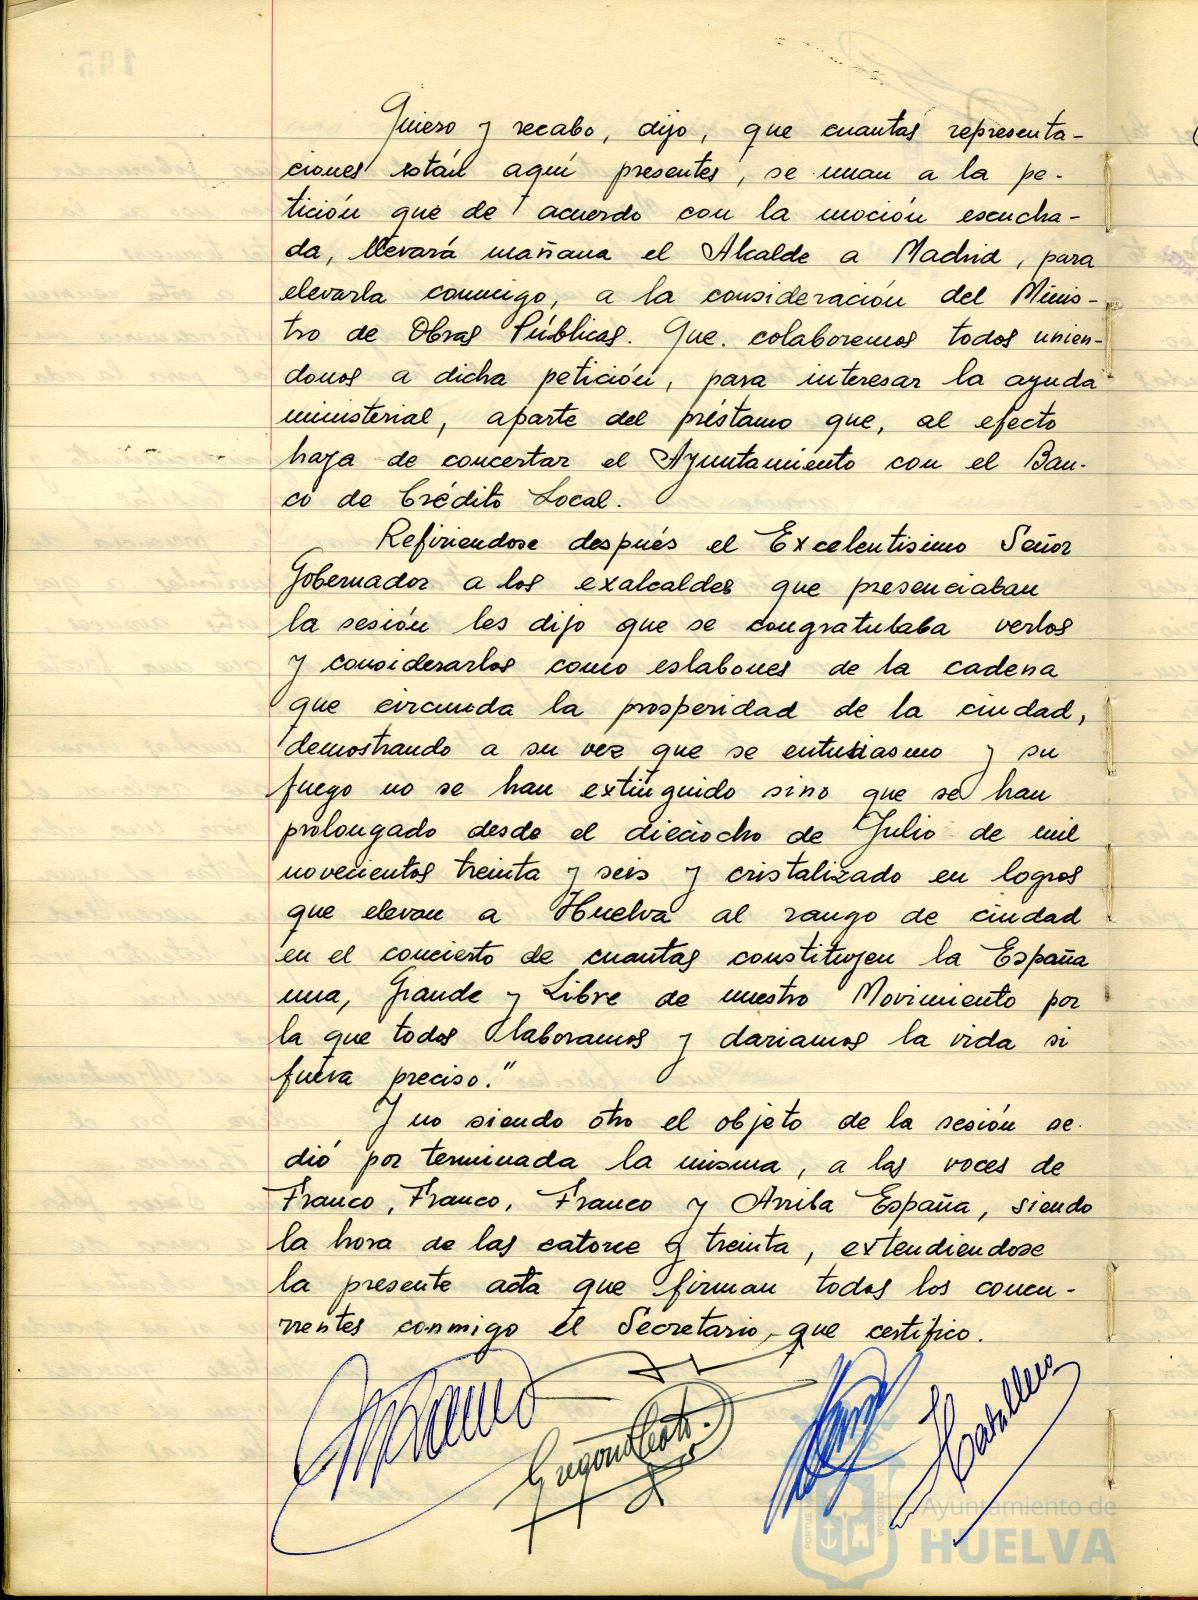 Quiero y recabo, dijo, que cuantas representa-
ciones están aquí presentes, se unan a la pe-
tición que de acuerdo con la moción escucha-
da, llevará mañana el Alcalde a Madrid, para
elevarla conmigo, a la consideración del Minis-
tro de Obras Públicas. Que. colaboremos todos unien-
donos a dicha petición, para interesar la ayuda
ministerial, aparte del préstamo que, al efecto
haya de concertar el Ayuntamiento con el Ban-
co de Crédito Local.
Refiriendose después el Excelentisimo Señor
Gobernador a los exalcaldes que presenciaban
la sesión les dijo que se congratulaba verlos
y considerarlos como eslabones de la cadena
que circunda la prosperidad de la ciudad,
demostrando a su vez que se entusiasmo y su
fuego no se han extinguido sino que se han
prolongado desde el dieciocho de Julio de mil
novecientos treinta y seis y cristalizado en logros
que elevan a Huelva al rango de ciudad
en el concierto de cuantas constituyen la España
una, Grande y Libre de nuestro Movimiento por
la que todos laboramos y dariamos la vida si
fuera preciso."
Y no siendo otro el objeto de la sesión se
dió por terminada la misma, a las voces de
Franco, Franco, Franco y Arriba España, siendo
la hora de las catorce y treinta, extendiendose
la presente acta que firman todos los concu-
rrentes conmigo el Secretario, que certifico.
Caballero
Ayuntamiento de
HUELVA